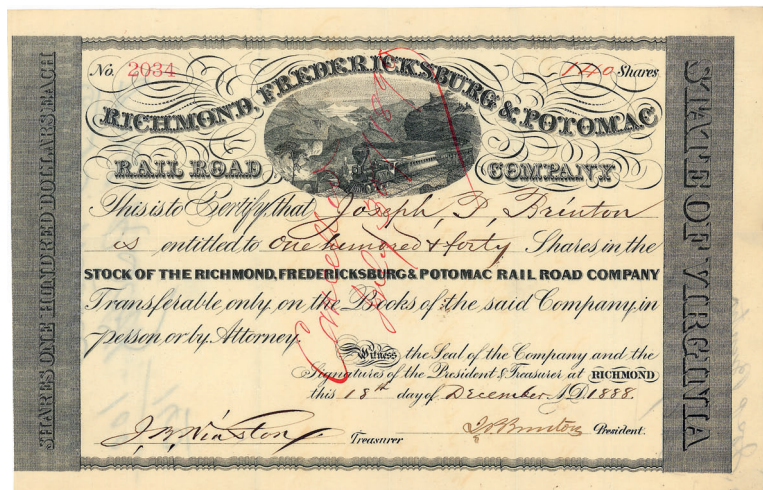 No. 2034
140 Shares
RICHMOND, FREDERICKSBURG & POTOMAC
RAIL ROAD COMPANY
This is to Certify, that Joseph, D, Brinton
is entitled to one hundred & forty Shares in the
STOCK OF THE RICHMOND, FREDERICKSBURG & POTOMAC RAIL ROAD COMPANY
Transferable, only, on the Books of the said Company, in
person or by Attorney.
Witness the Seal of the Company and the
Signatures of the President & Treasurer at RICHMOND
this 13th day of December A.D. 1888.
J.B. Winston Treasurer
President.
SHARES ONE HUNDRED DOLLARS EACH
STATE OF VIRGINIA
Cancelled
July